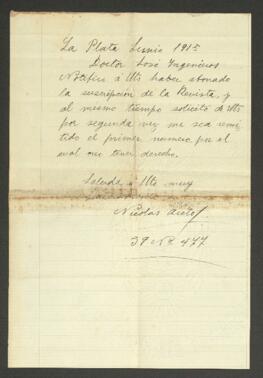 La Plata Junio 1915
Doctor José Ingenieros
Notifico á Ud haber abonado
la suscripción de la Revista, y
al mismo tiempo solicito de Ud
por segunda vez me sea remi
tido el primer numero por el
cual creo tener derecho.
Saluda a Ud muy
Nicolas
39 Nº 477